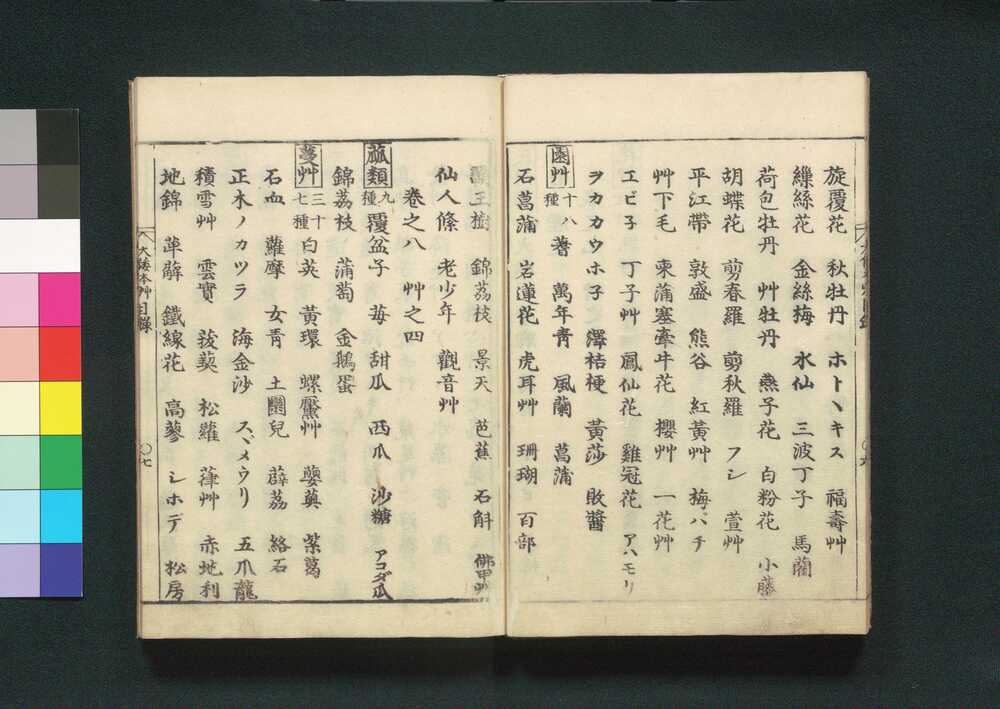 旋覆花 秋牡丹 ホトヽキス 福壽艸
繅絲花 金絲梅 水仙 三波丁子 馬藺
荷包牡丹 艸牡丹 燕子花 白粉花 小藤
胡蝶花 剪春羅 剪秋羅 フシ 萱艸
平江帶 敦盛 熊谷 紅黃艸 梅バチ
艸下毛 柬蒲塞牽牛花 櫻艸 一花艸
エビ子 丁子艸 鳳仙花 雞冠花 アハモリ
ヲカカウホ子 澤桔梗 黃莎 敗醬
園艸 十八種 蓍 萬年青 風蘭 菖蒲
石菖蒲 岩蓮花 虎耳艸 珊瑚 百部
霸王樹 錦荔枝 景天 芭蕉 石斛 佛甲艸
仙人條 老少年 觀音艸
卷之八 艸之四
蓏類 九種 覆盆子 苺 甜瓜 西瓜 沙糖 アコダ瓜
錦荔枝 蒲萄 金鵝蛋
蔓艸 三十七種 白英 黃環 螺黶艸 蘡薁 紫葛
石血 蘿摩 女青 土圞兒 薜荔 絡石
正木ノカツラ 海金沙 スヾメウリ 五爪龍
積雪艸 雲實 菝葜 松蘿 葎艸 赤地利
地錦 萆薢 鐵線花 高蓼 シホデ 松房
大倭本艸目錄 〇七